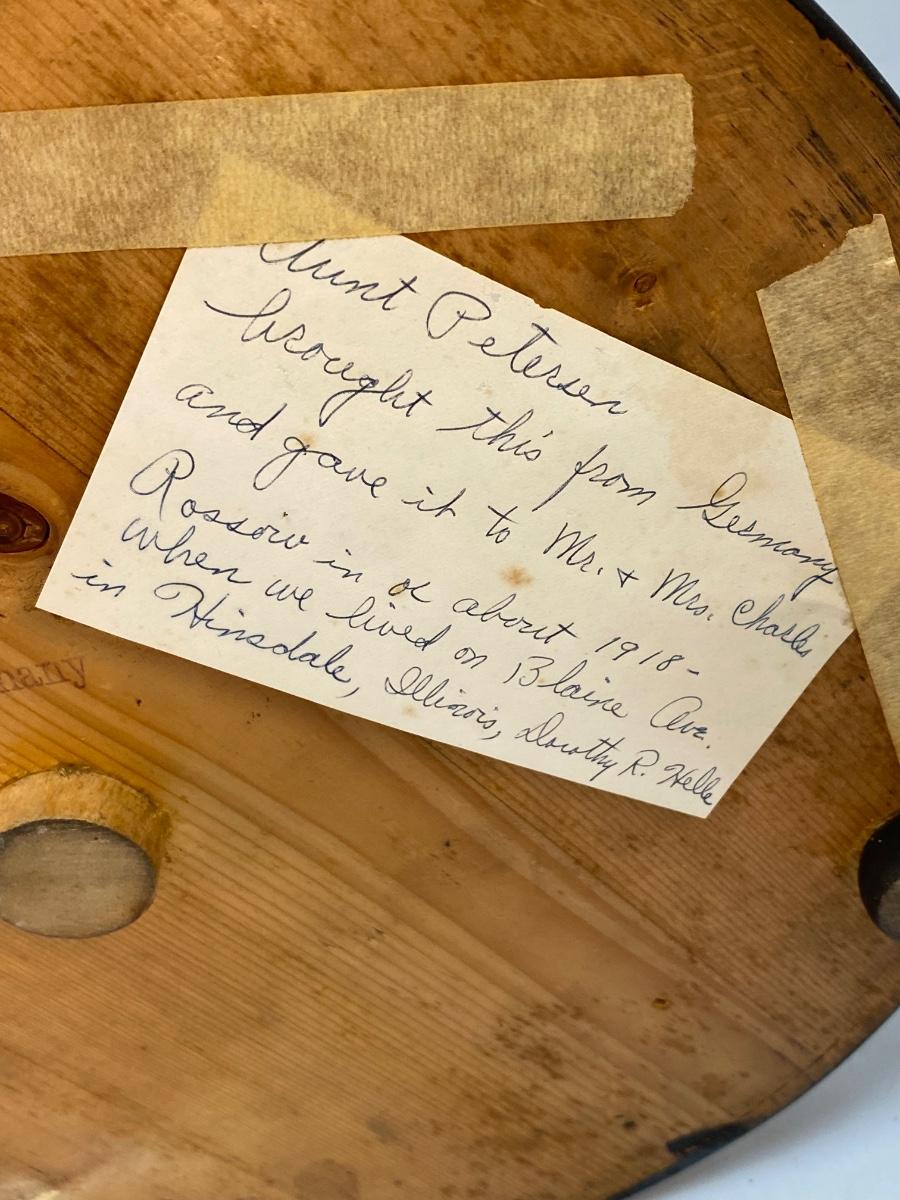 Aunt Petersen
brought this from Germany
and gave it to Mr. & Mrs. Charles
Rossow in or about 1918-
when we lived on Blaine Ave.
in Hinsdale, Illinois, Dorothy R. Helle
many